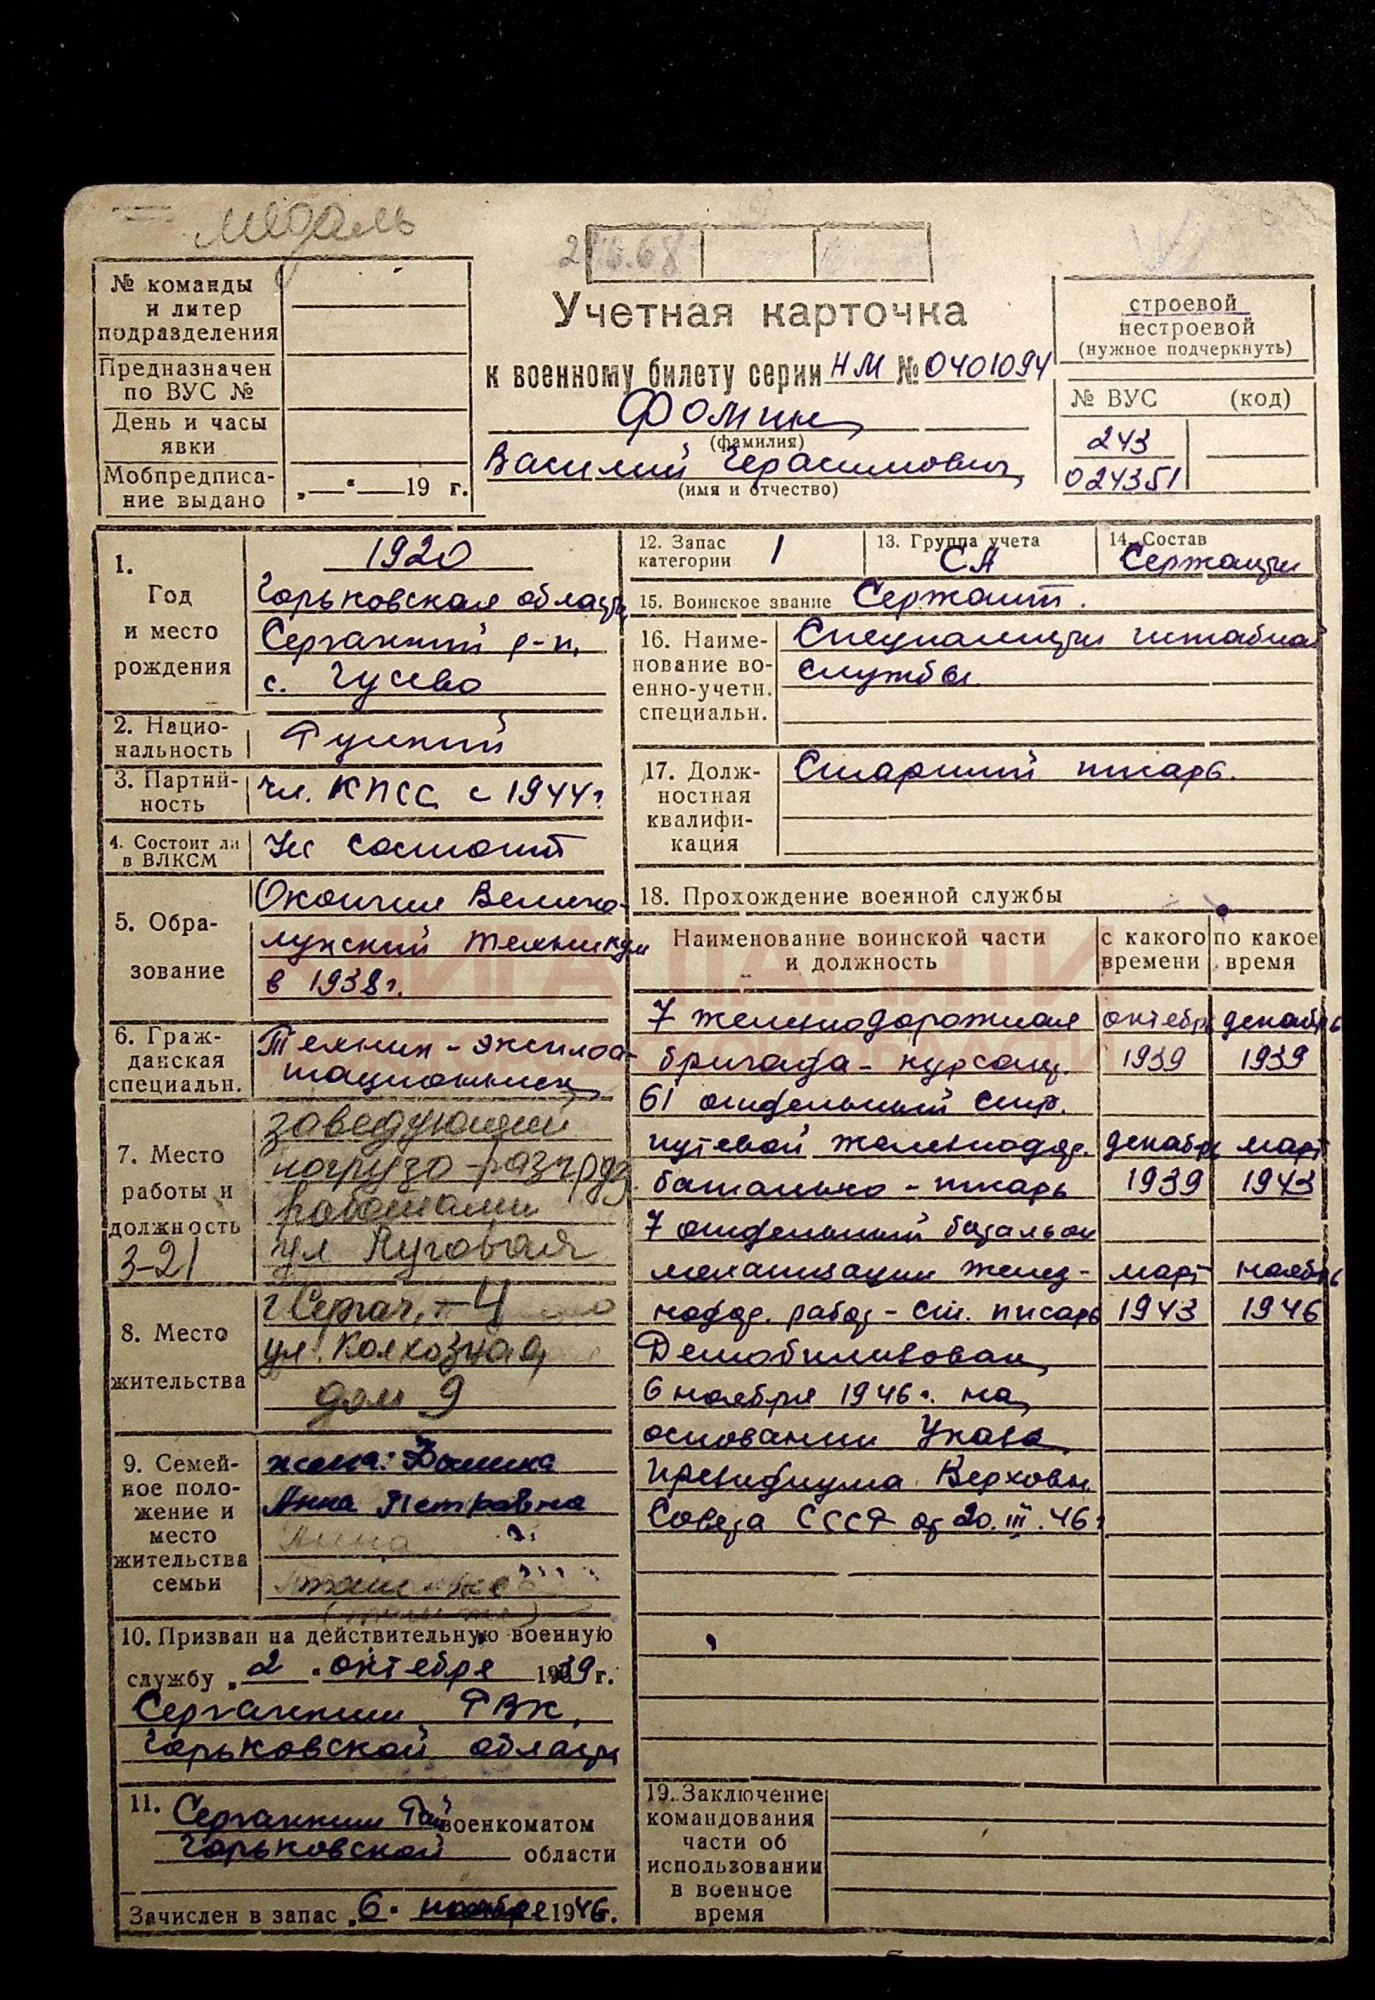 медаль
№ команды
и литер
подразделения
Предназначен
по ВУС №
День и часы
явки
Мобпредписа-
ние выдано
„—“—19 г.
Учетная карточка
к военному билету серии НМ № 0401094
Фомин
(фамилия)
Василий Герасимович
(имя и отчество)
строевой
нестроевой
(нужное подчеркнуть)
№ ВУС (код)
243
024351
1.
Год
и место
рождения
1920
Горьковская область
Сергачский р-н,
с. Гусево
2. Нацио-
нальность
Русский
3. Партий-
ность
Чл. КПСС с 1944 г.
4. Состоит ли
в ВЛКСМ
Не состоит
5. Обра-
зование
Окончил Велико-
лукский техникум
в 1938 г.
6. Граж-
данская
специальн.
Техник-эксплоа-
тационник
7. Место
работы и
должность
3-21
заведующий
погрузо-разгруз.
работами
ул Луговая
8. Место
жительства
г Сергач, - 4
ул. Колхозная,
дом 9
9. Семей-
ное поло-
жение и
место
жительства
семьи
жена: Фомина
Анна Петровна
Анна
там-же
10. Призван на действительную военную
службу „2“ октября 1939 г.
Сергачским РВК,
Горьковской области
11.
Сергачским Рай военкоматом
Горьковской области
Зачислен в запас „6“ ноября 1946 г.
12. Запас
категории 1
13. Группа учета
СА
14. Состав
Сержанты
15. Воинское звание Сержант.
16. Наиме-
нование во-
енно-учетн.
специальн.
Специалисты штабной
службы
17. Долж-
ностная
квалифи-
кация
Старший писарь.
18. Прохождение военной службы
Наименование воинской части
и должность
с какого
времени
по какое
время
7 железнодорожная октябрь декабрь
бригада - курсант. 1939 1939
61 отдельный стр.
путевой железнодор. декабрь март
батальон - писарь 1939 1943
7 отдельный батальон
механизации желез- март ноябрь
нодор. работ - ст. писарь 1943 1946
Демобилизован
6 ноября 1946 г. на
основании Указа
Президиума Верховн.
Совета СССР от 20.III.46 г
19. Заключение
командования
части об
использовании
в военное
время
КНИГА ПАМЯТИ
НИЖЕГОРОДСКОЙ ОБЛАСТИ